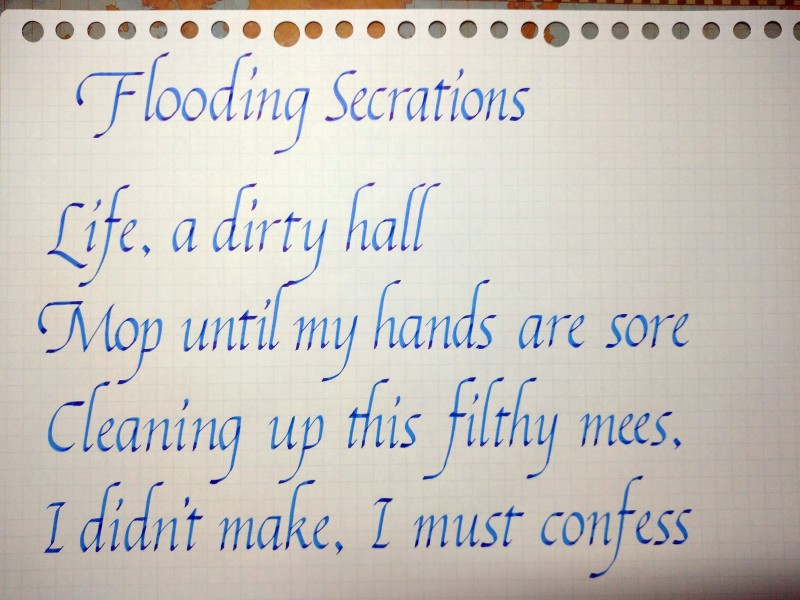 Flooding Secrations
Life, a dirty hall
Mop until my hands are sore
Cleaning up this filthy mees,
I didn't make, I must confess